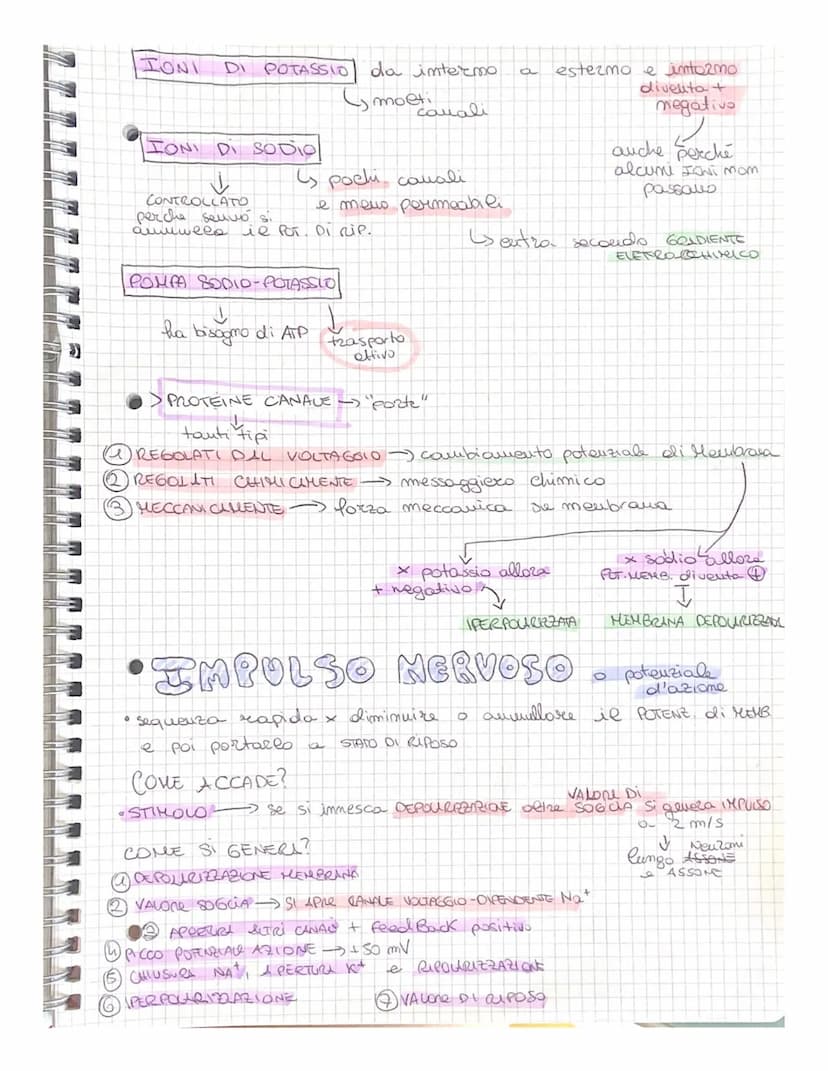 IONI DI POTASSIO da interno a esterno e intorno
diventa +
negativo
↳ molti
canali
anche perché
alcuni IONI non
passano
• IONI DI SODIO
↳ pochi canali
e meno permeabili
↓
CONTROLLATO
perche sennò si
annulla il POT. DI RIP.
↳ entra secondo GRADIENTE
ELETTROCHIMICO
POMPA SODIO-POTASSIO
ha bisogno di ATP
trasporto
attivo
• > PROTEINE CANALE → "porte"
tanti tipi
① REGOLATI DAL VOLTAGGIO → cambiamento potenziale di Membrana
② REGOLATI CHIMICAMENTE → messaggiero chimico
③ MECCANICAMENTE → forza meccanica su membrana
× potassio allora
+ negativo
IPERPOLARIZZATA
× sodio allora
POT. MEMB. diventa ⊕
MEMBRANA DEPOLARIZZATA
• IMPULSO NERVOSO o potenziale
d'azione
• sequenza rapida × diminuire o annullare il POTENZ. di MEMB
e poi portarlo a STATO DI RIPOSO
COME ACCADE?
• STIMOLO → se si innesca DEPOLARIZZAZIONE oltre VALORE DI SOGLIA si genera IMPULSO
a 2 m/s
↓ Neuroni
lungo ASSONE
e ASSONE
COME SI GENERA?
① DEPOLARIZZAZIONE MEMBRANA
② VALORE SOGLIA → SI APRE CANALE VOLTAGGIO-DIPENDENTE Na⁺
③ APERTURA ALTRI CANALI + FeedBack positivo
④ PICCO POTENZIALE AZIONE → +50 mV
⑤ CHIUSURA NA⁺, APERTURA K⁺ e RIPOLARIZZAZIONE
⑥ IPERPOLARIZZAZIONE ⑦ VALORE DI RIPOSO